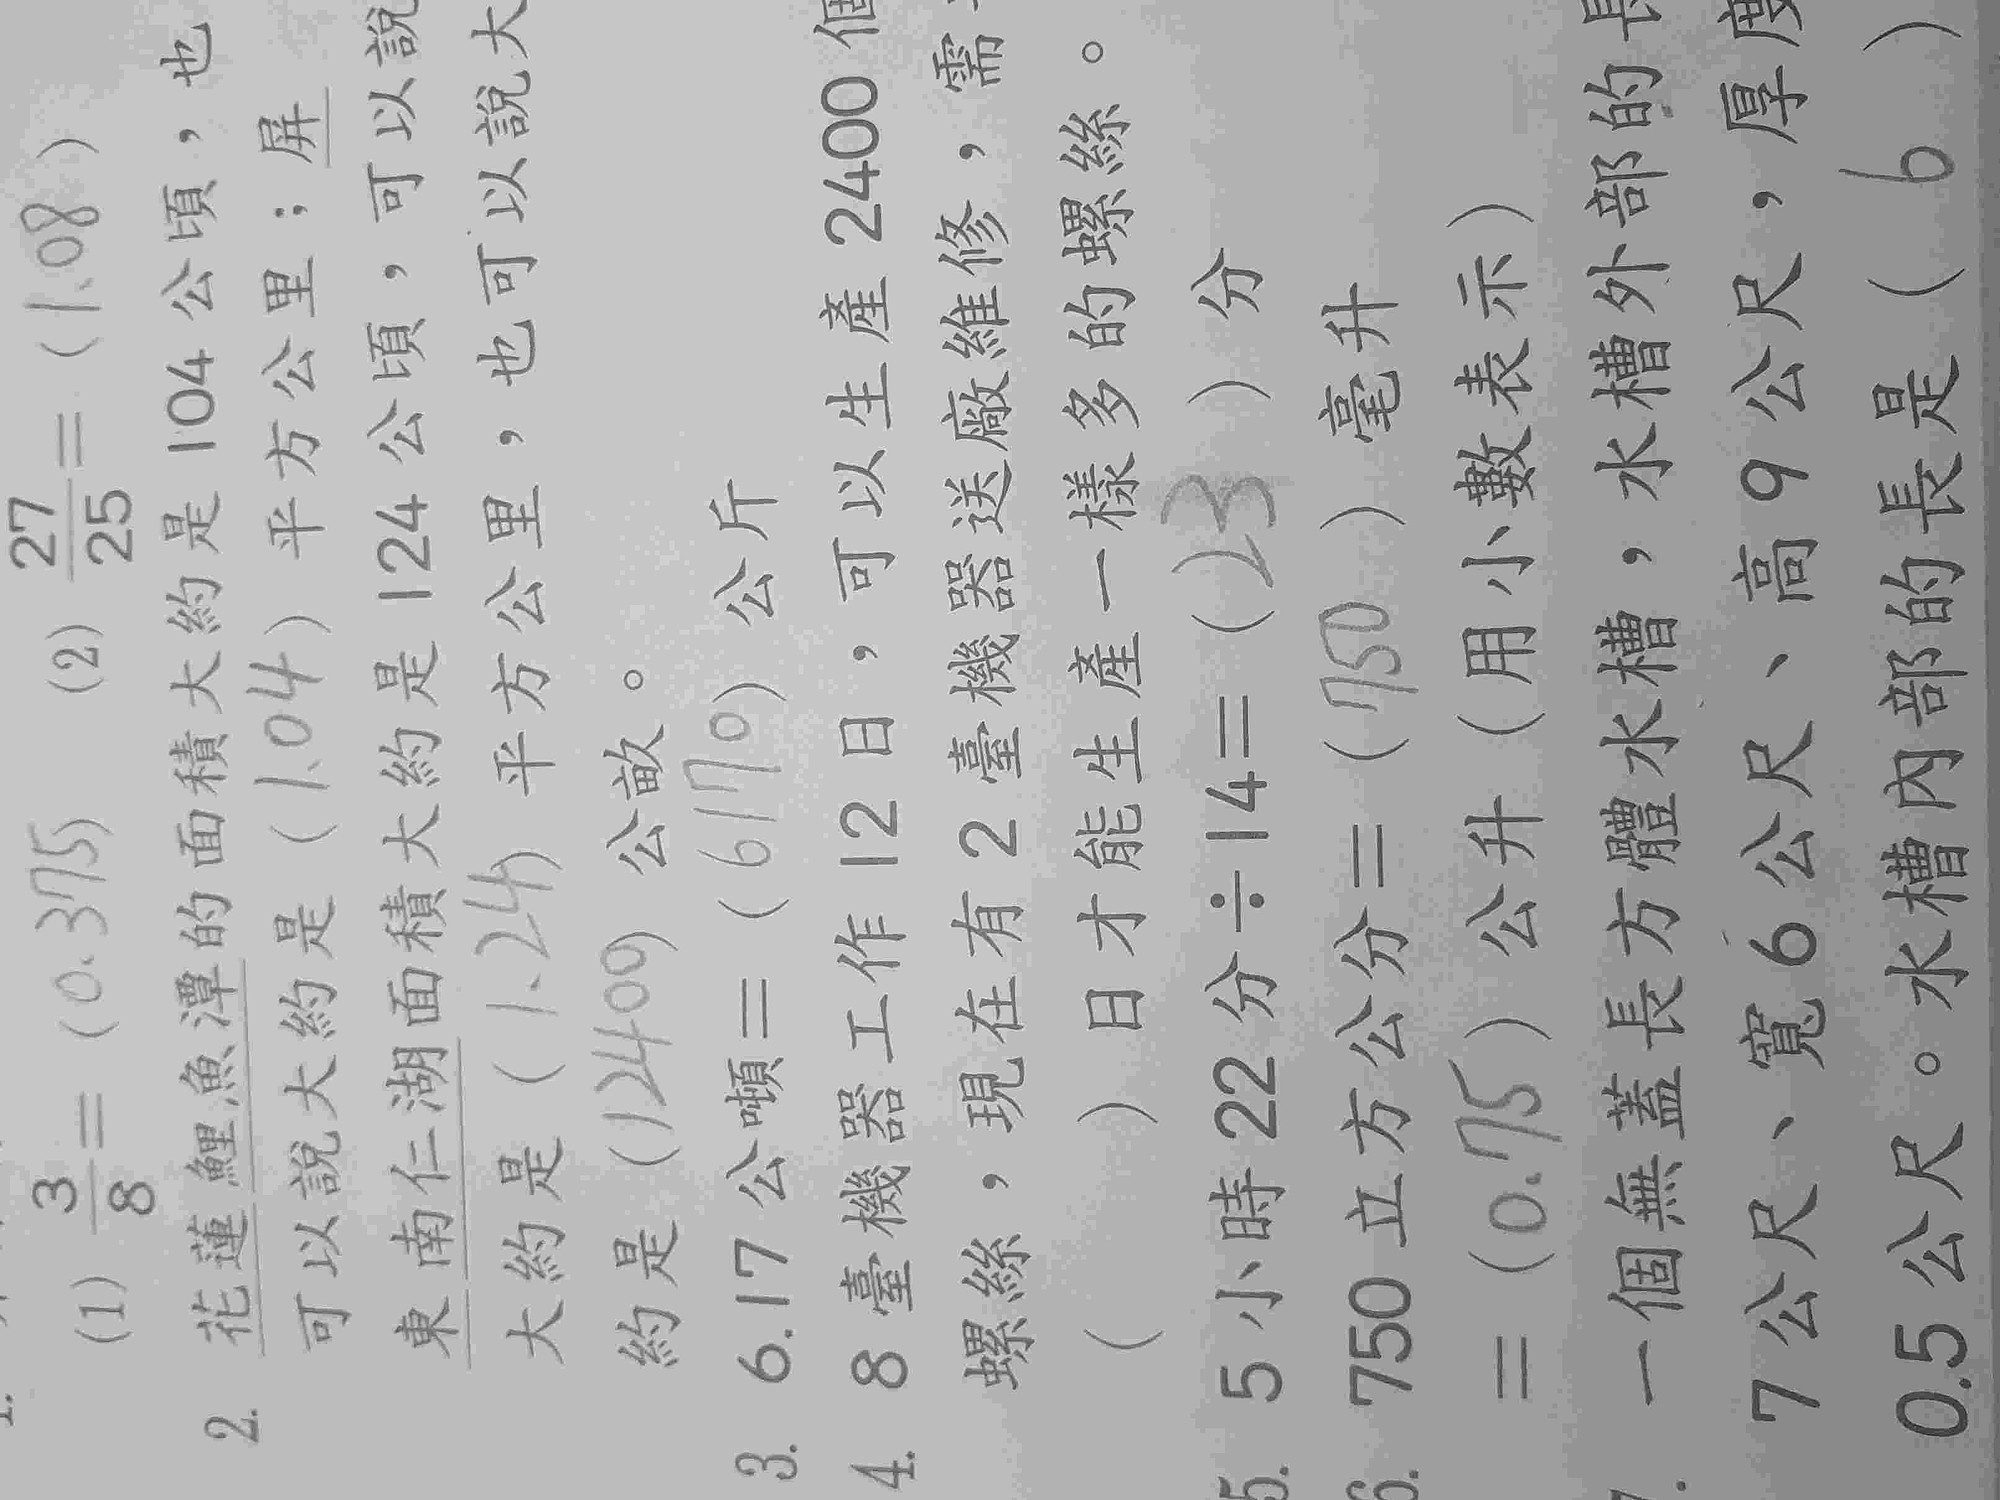 (1) 3/8 = (0.375) (2) 27/25 = (1.08)
2. 花蓮鯉魚潭的面積大約是104公頃，也
可以說大約是(1.04)平方公里；屏
東南仁湖面積大約是124公頃，可以說
大約是(1.24)平方公里，也可以說大
約是(12400)公畝。
3. 6.17公噸=(6170)公斤
4. 8臺機器工作12日，可以生產2400個
螺絲，現在有2臺機器送廠維修，需
( )日才能生產一樣多的螺絲。
5. 5小時22分÷14=(23)分
6. 750立方公分=(750)毫升
=(0.75)公升(用小數表示)
一個無蓋長方體水槽，水槽外部的長
7公尺、寬6公尺、高9公尺，厚度
0.5公尺。水槽內部的長是(6)